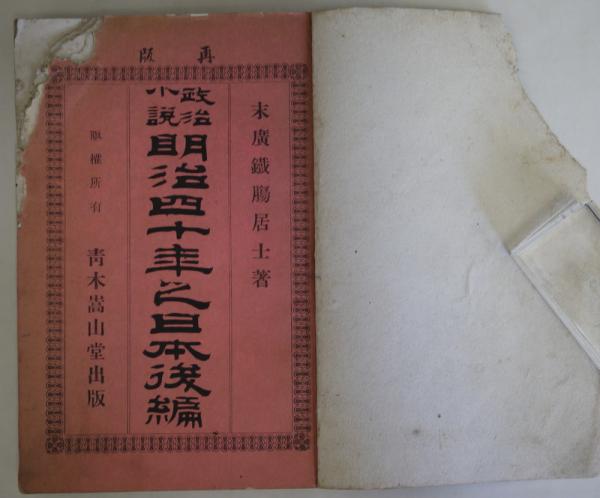 再版
末廣鐵膓居士著
政治小説
明治四十年之日本後編
版權所有
青木嵩山堂出版